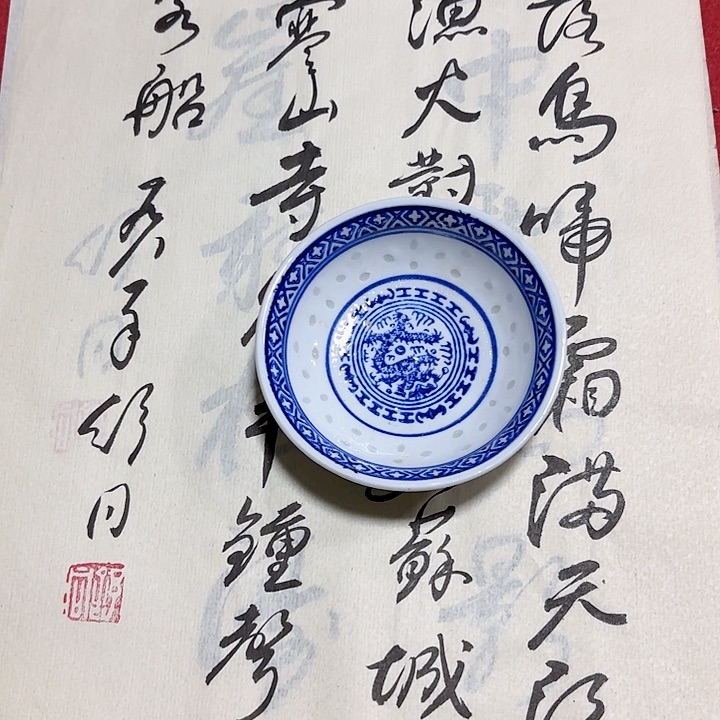 落烏啼霜滿天江
漁火對 蘇城
寒山寺 鐘聲
客船
舒同